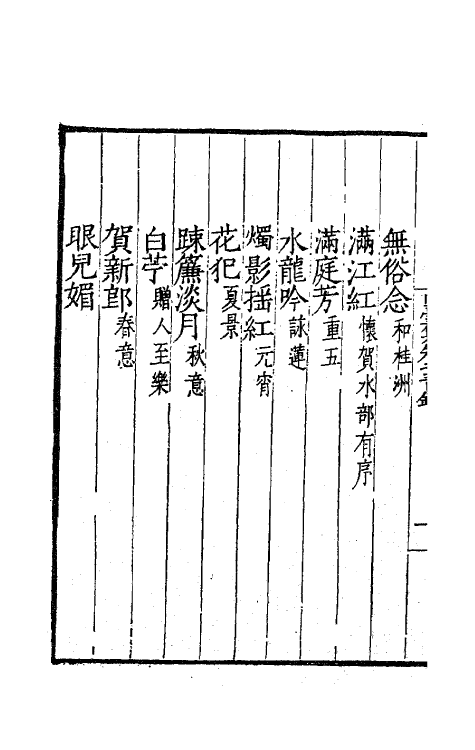 無俗念 和桂洲
滿江紅 懷賀水部有序
滿庭芳 重五
水龍吟 詠蓮
燭影摇紅 元宵
花犯 夏景
踈簾淡月 秋意
白苧 贈人至樂
賀新郎 春意
眼兒媚